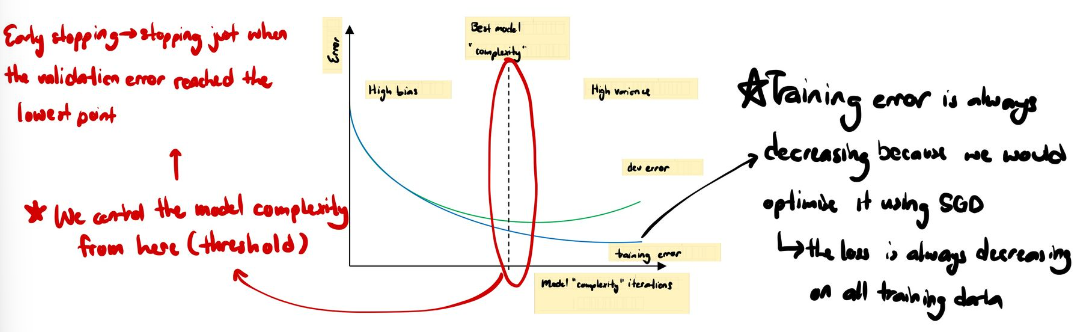 Early stopping→stopping just when
the validation error reached the
lowest point
★ We control the model complexity
from here (threshold)
Error
Best model
"complexity"
High bias
High variance
dev error
training error
Model "complexity" iterations
★Training error is always
decreasing because we would
optimise it using SGD
↳the loss is always decreasing
on all training data